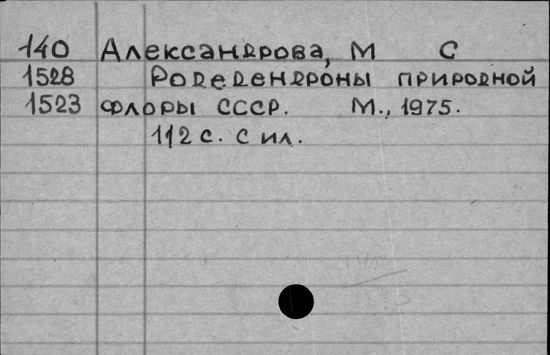 140 Александрова, М С
1528 Рододендроны природной
1523 флоры СССР. М., 1975.
112 с. с ил.